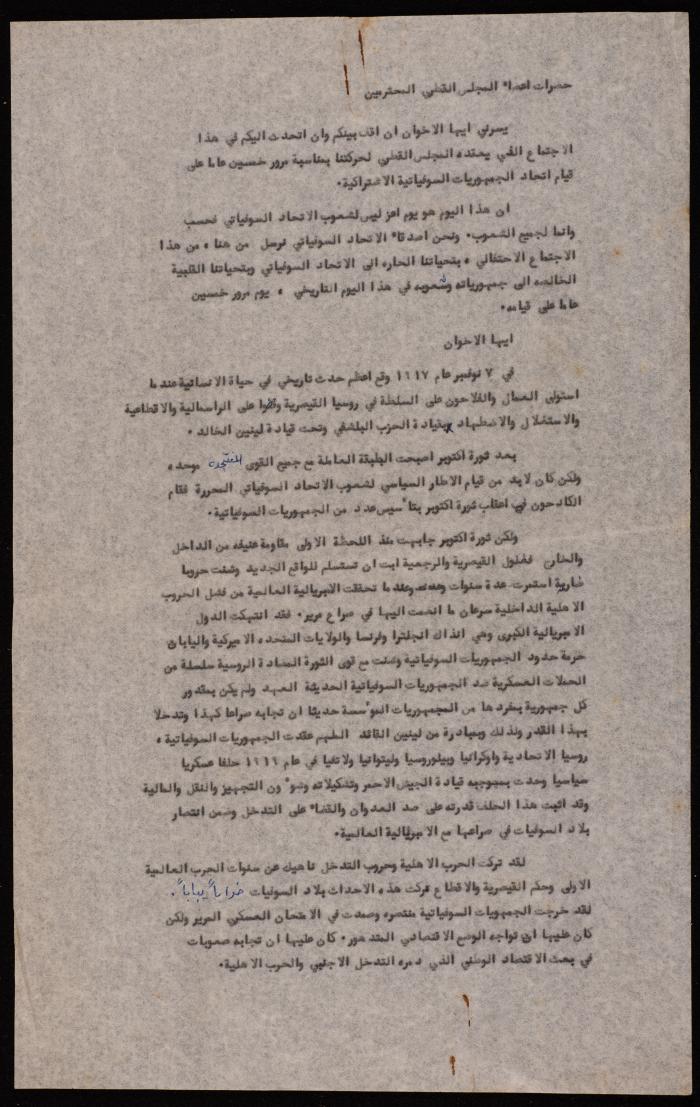 حضرات اعضاء المجلس القطري المحترمين
يسرني ايها الاخوان ان اقف بينكم وان اتحدث اليكم في هذا
الاجتماع الذي يعقده المجلس القطري لحركتنا بمناسبة مرور خمسين عاما على
قيام اتحاد الجمهوريات السوفياتية الاشتراكية.
ان هذا اليوم هو يوم اعز ليس لشعوب الاتحاد السوفياتي فحسب
وانما لجميع الشعوب. ونحن اصدقاء الاتحاد السوفياتي نرسل من هنا ، من هذا
الاجتماع الاحتفالي ، بتحياتنا الحاره الى الاتحاد السوفياتي وبتحياتنا القلبية
الخالصه الى جمهورياته وشعوبه في هذا اليوم التاريخي ، يوم مرور خمسين
عاما على قيامه.
ايها الاخوان
في ٧ نوفمبر عام ١٩١٧ وقع اعظم حدث تاريخي في حياة الانسانية عندما
استولى العمال والفلاحون على السلطة في روسيا القيصرية وقضوا على الراسمالية والاقطاعية
والاستغلال والاضطهاد بقيادة الحزب البلشفي وتحت قيادة لينين الخالد .
بعد ثورة اكتوبر اصبحت الطبقة العاملة مع جميع القوى المنتجه موحده
ولكن كان لا بد من قيام الاطار السياسي لشعوب الاتحاد السوفياتي المحررة فقام
الكادحون في اعقاب ثورة اكتوبر بتأسيس عدد من الجمهوريات السوفياتية.
ولكن ثورة اكتوبر جابهت منذ اللحظة الاولى مقاومة عنيفه من الداخل
والخارج فلول القيصرية والرجعية ابت ان تستسلم للواقع الجديد وشنت حروبا
ضارية استمرت عدة سنوات وعندما تحققت الامبريالية العالمية من فشل الحروب
الاهلية الداخلية سرعان ما انضمت اليها في صراع مرير. فقد انتهكت الدول
الامبريالية الكبرى وهي انذاك انجلترا وفرنسا والولايات المتحده الاميركية واليابان
حرمة حدود الجمهوريات السوفياتية وشنت مع قوى الثورة المضادة الروسية سلسلة من
الحملات العسكرية ضد الجمهوريات السوفياتية الحديثة العهد ولم يكن بمقدور
كل جمهورية بمفردها من الجمهوريات المؤسسة حديثا ان تجابه صراعا كهذا وتدخلا
بهذا القدر ولذلك وبمبادرة من لينين القائد الملهم عقدت الجمهوريات السوفياتية ،
روسيا الاتحادية واوكرانيا وبيلوروسيا وليتوانيا ولاتفيا في عام ١٩١٩ حلفا عسكريا
سياسيا وحدت بموجبه قيادة الجيش الاحمر وتشكيلاته وشؤون التجهيز والنقل والمالية
وقد اثبت هذا الحلف قدرته على صد العدوان والقضاء على التدخل وضمن انتصار
بلاد السوفيات في صراعها مع الامبريالية العالمية.
لقد تركت الحرب الاهلية وحروب التدخل ناهيك عن سنوات الحرب العالمية
الاولى وحكم القيصرية والاقطاع تركت هذه الاحداث بلاد السوفيات خراباً يباباً.
لقد خرجت الجمهوريات السوفياتية منتصره وصمدت في الامتحان العسكري المرير ولكن
كان عليها ان تواجه الوضع الاقتصادي المتدهور. كان عليها ان تجابه صعوبات
في بعث الاقتصاد الوطني الذي دمره التدخل الاجنبي والحرب الاهلية.